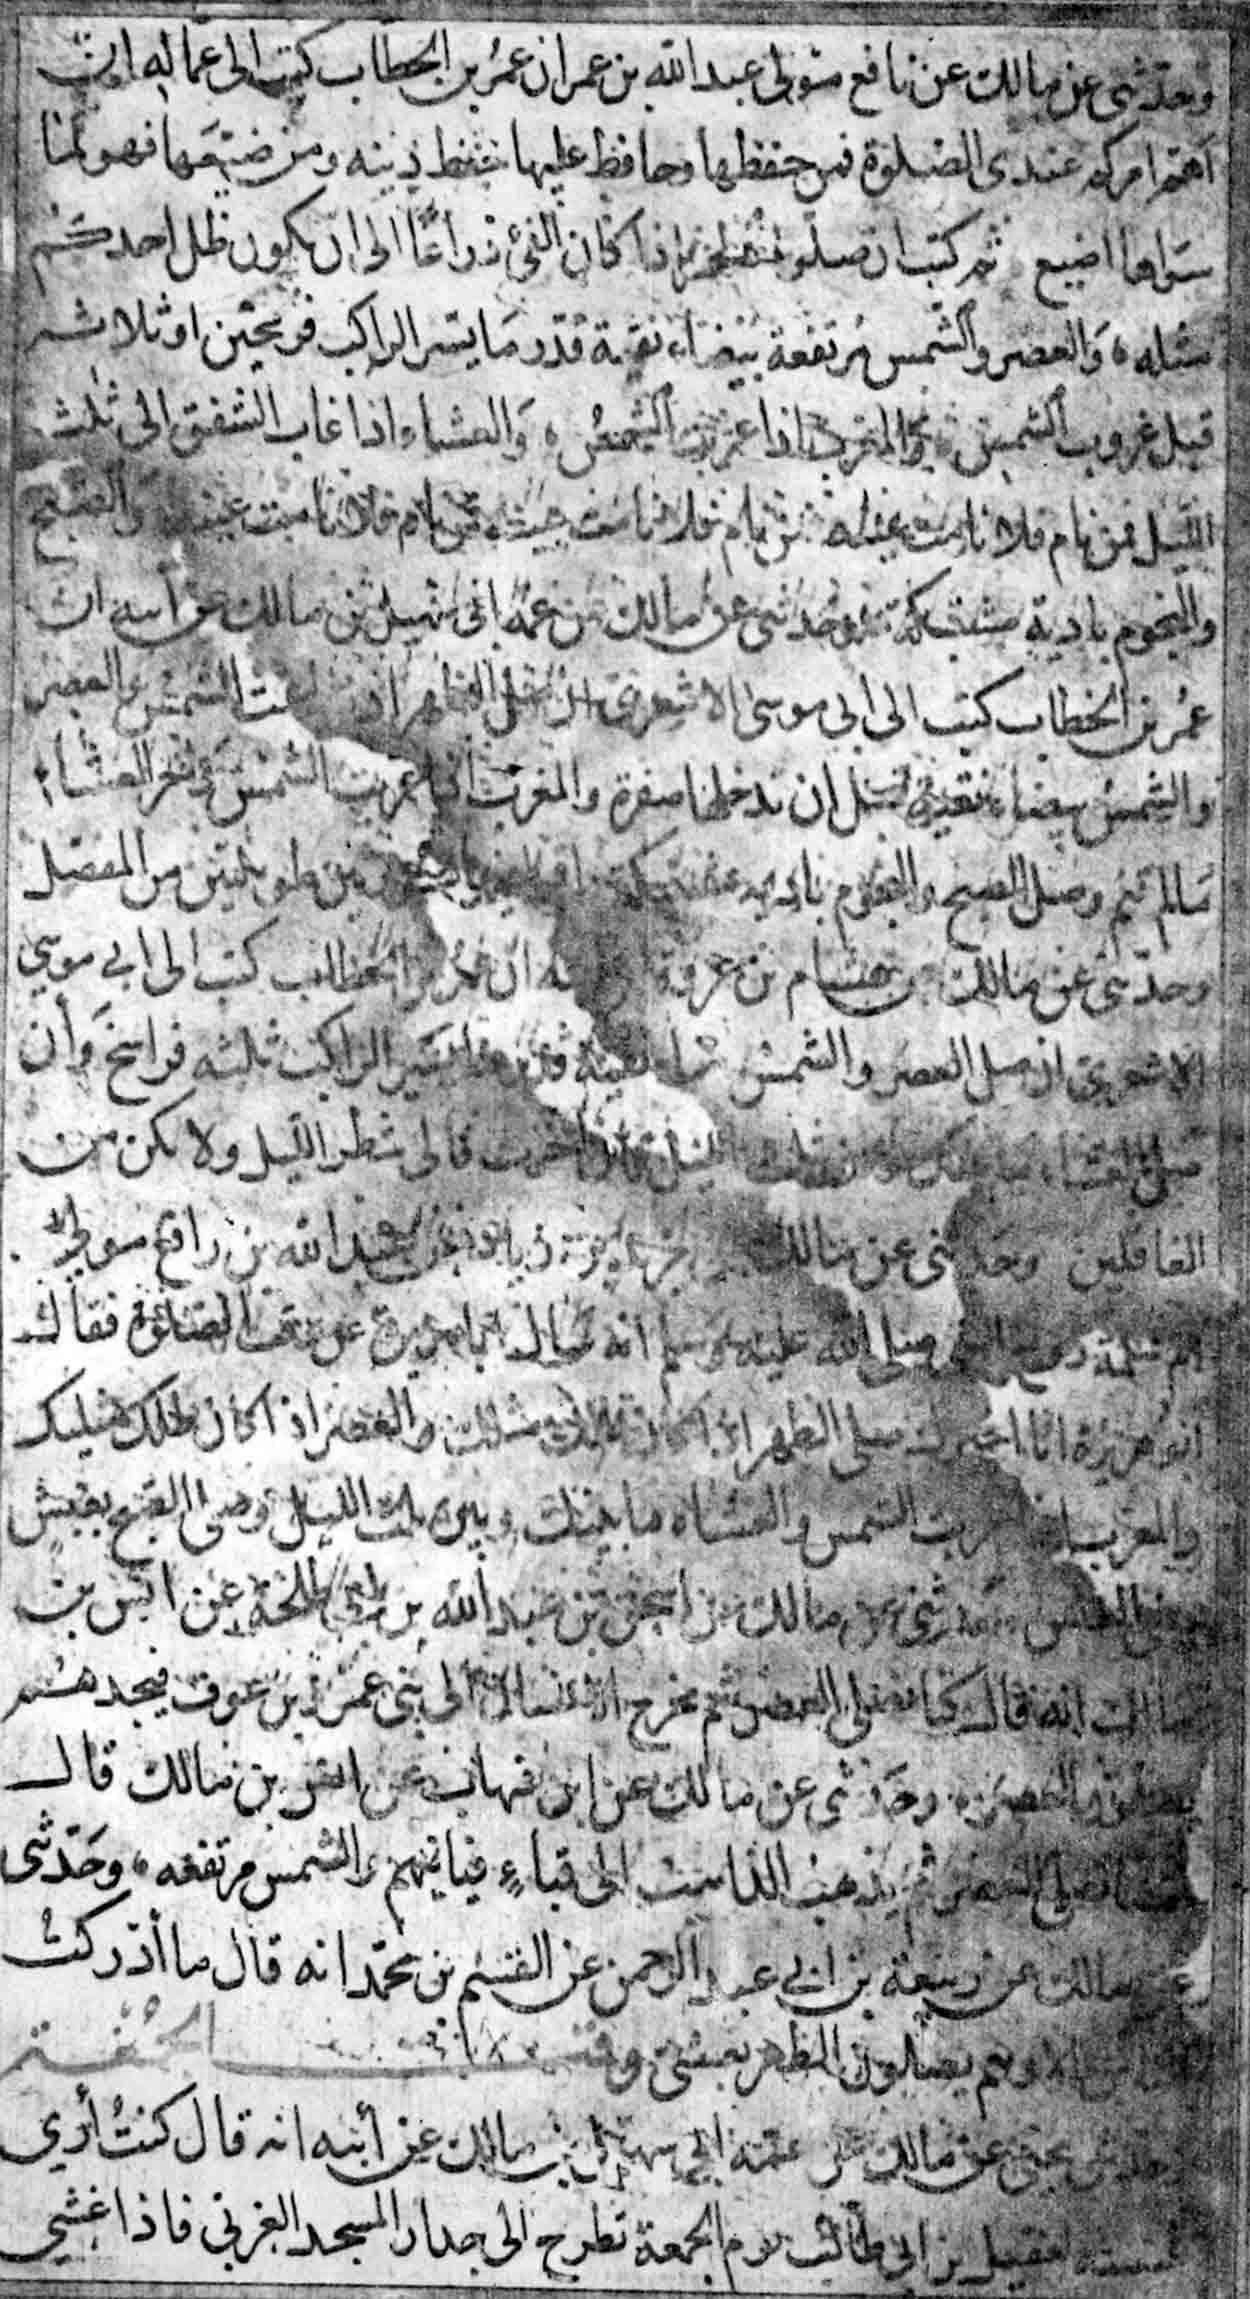 وحدثني عن مالك عن نافع مولى عبد الله بن عمر ان عمر بن الخطاب كتب الى عماله ان
اهم امركم عندي الصلوة فمن حفظها وحافظ عليها حفظ دينه ومن ضيعها فهو لما
سواها اضيع ثم كتب ان صلوا الظهر اذا كان الفئ ذراعا الى ان يكون ظل احدكم
مثله والعصر والشمس مرتفعة بيضاء نقية قدر ما يسير الراكب فرسخين او ثلاثة
قبل غروب الشمس والمغرب اذا غربت الشمس والعشاء اذا غاب الشفق الى ثلث
الليل فمن نام فلا نامت عينه فمن نام فلا نامت عينه فمن نام فلا نامت عينه والصبح
والنجوم بادية مشتبكة وحدثني عن مالك عن عمه ابي سهيل بن مالك عن ابيه ان
عمر بن الخطاب كتب الى ابي موسى الاشعري ان صل الظهر اذا الشمس والعصر
والشمس بيضاء نقية قبل ان تدخلها صفرة والمغرب اذا غربت الشمس واخر العشاء
مالم تنم وصل الصبح والنجوم بادية مشتبكة طويلتين من المفصل
وحدثني عن مالك عن هشام بن عروة ان عمر بن الخطاب كتب الى ابي موسي
الاشعري ان صل العصر والشمس بيضاء نقية قدر ما يسير الراكب ثلثه فراسخ وأن
صل العشاء ما بينك وبين ثلث الليل فان اخرت فالى شطر الليل ولا تكن من
الغافلين وحدثني عن مالك عن يزيد بن زياد عن عبد الله بن رافع مولى
ام سلمة صلى الله عليه وسلم انه سال ابا هريرة عن وقت الصلوة فقال
ابو هريرة انا اخبرك صلي الظهر اذا كان ظلك مثلك والعصر اذا كان ظلك مثليك
والمغرب اذا غربت الشمس والعشاء ما بينك وبين ثلث الليل وصلى الصبح بغبش
يعني الغلس وحدثني عن مالك عن اسحق بن عبد الله بن ابي طلحة عن انس بن
مالك انه قال كنا نصلي العصر ثم يخرج الانسان الى بني عمرو بن عوف فيجدهم
يصلون العصر وحدثني عن مالك عن ابن شهاب عن انس بن مالك قال
كنا نصلي العصر ثم يذهب الذاهب الى قباء فياتيهم والشمس مرتفعه وحدثني
عن مالك عن ربيعة بن ابي عبد الرحمن عن القسم بن محمد انه قال ما أدركت
الناس الا وهم يصلون الظهر بعشي وقت الجمعة
حدثني يحيى عن مالك عن عمه ابي سهيل بن مالك عن أبيه انه قال كنت أرى
طنفسة لعقيل بن ابي طالب يوم الجمعة تطرح الى جدار المسجد الغربي فاذا غشي